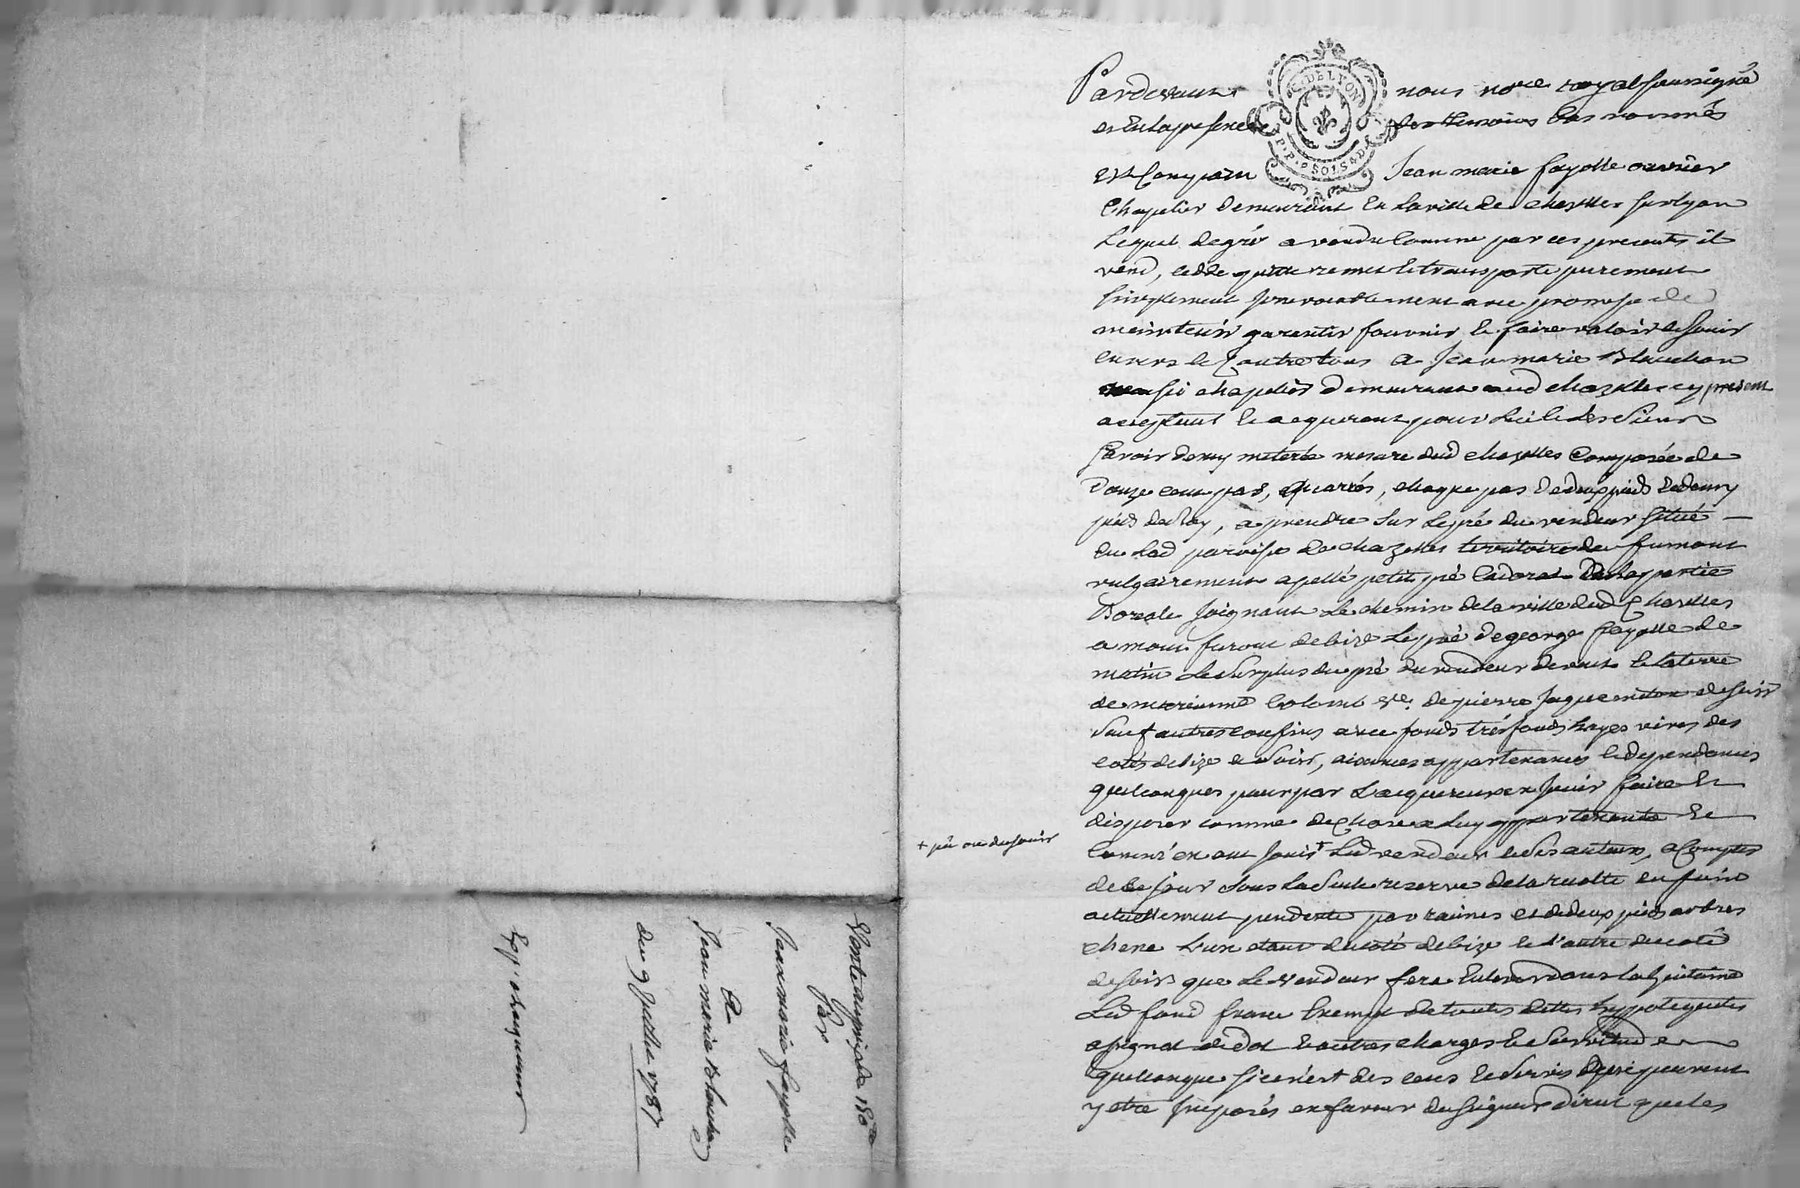 Pardevant nous no.re royal soussigné
et en la presence des temoins bas nommés
est comparu Jean marie fayolle ouvrier
chapelier demeurant en la ville de chazelles sur lyon
Lequel de gré a vendu comme par ces presents il
vend, cedde quitte remet et transporte purement
simplement irrevocablement avec promesse de
maintenir garentir fournir et faire valoir et jouir
envers et contre tous a Jean marie Blanchon
aussi chapelier demeurant aud chazelles cy present
acceptant et acquerant pour lui et les siens
Savoir demy meterée mesure dud chazelles composée de
douze cent pas, quarrés, chaque pas de deux pieds et demy
pied de Roy, a prendre sur le pré du vendeur situé
en lad paroisse de chazelles territoire de fumont
vulgairement apellé petit pré de la partie
Boreale joignant le chemin de la ville dud Chazelles
a de bize le pré de george fayolle de
matin le surplus du pré du vendeur de vent et la terre
de marianne Colomb v.e de pierre Jaquemeton de soir
sauf autres confins avec fonds tréfonds hayes vives des
cotés de bize et soir, aisances appartenances et dependances
quelconques pour par l'acquereur en jouir faire et
disposer comme de chose a luy appartenante et
comm'en ont jouis + Led vendeur et ses auteurs, a Compter
+ pû ou du jouir
de ce jour sous la seule reserve de la recolte en foin
actuellement pendente par racines et de deux pieds arbres
chene l'un etant du coté de bize et l'autre du coté
de soir que le vendeur fera enlever dans la quinzaine
Led fond franc exempt de toutes dettes hypoteques
assignat de dot et autres charges et servitudes
quelconque si ce n'est des cens et servis peuvent
y etre imposés en faveur du seigneur direct que les
Vente au prix de 150 ₶
Par
Jean marie fayolle
A
Jean marie Blanchon
du 9 Juillet 1787
Exp. a l'acquereur